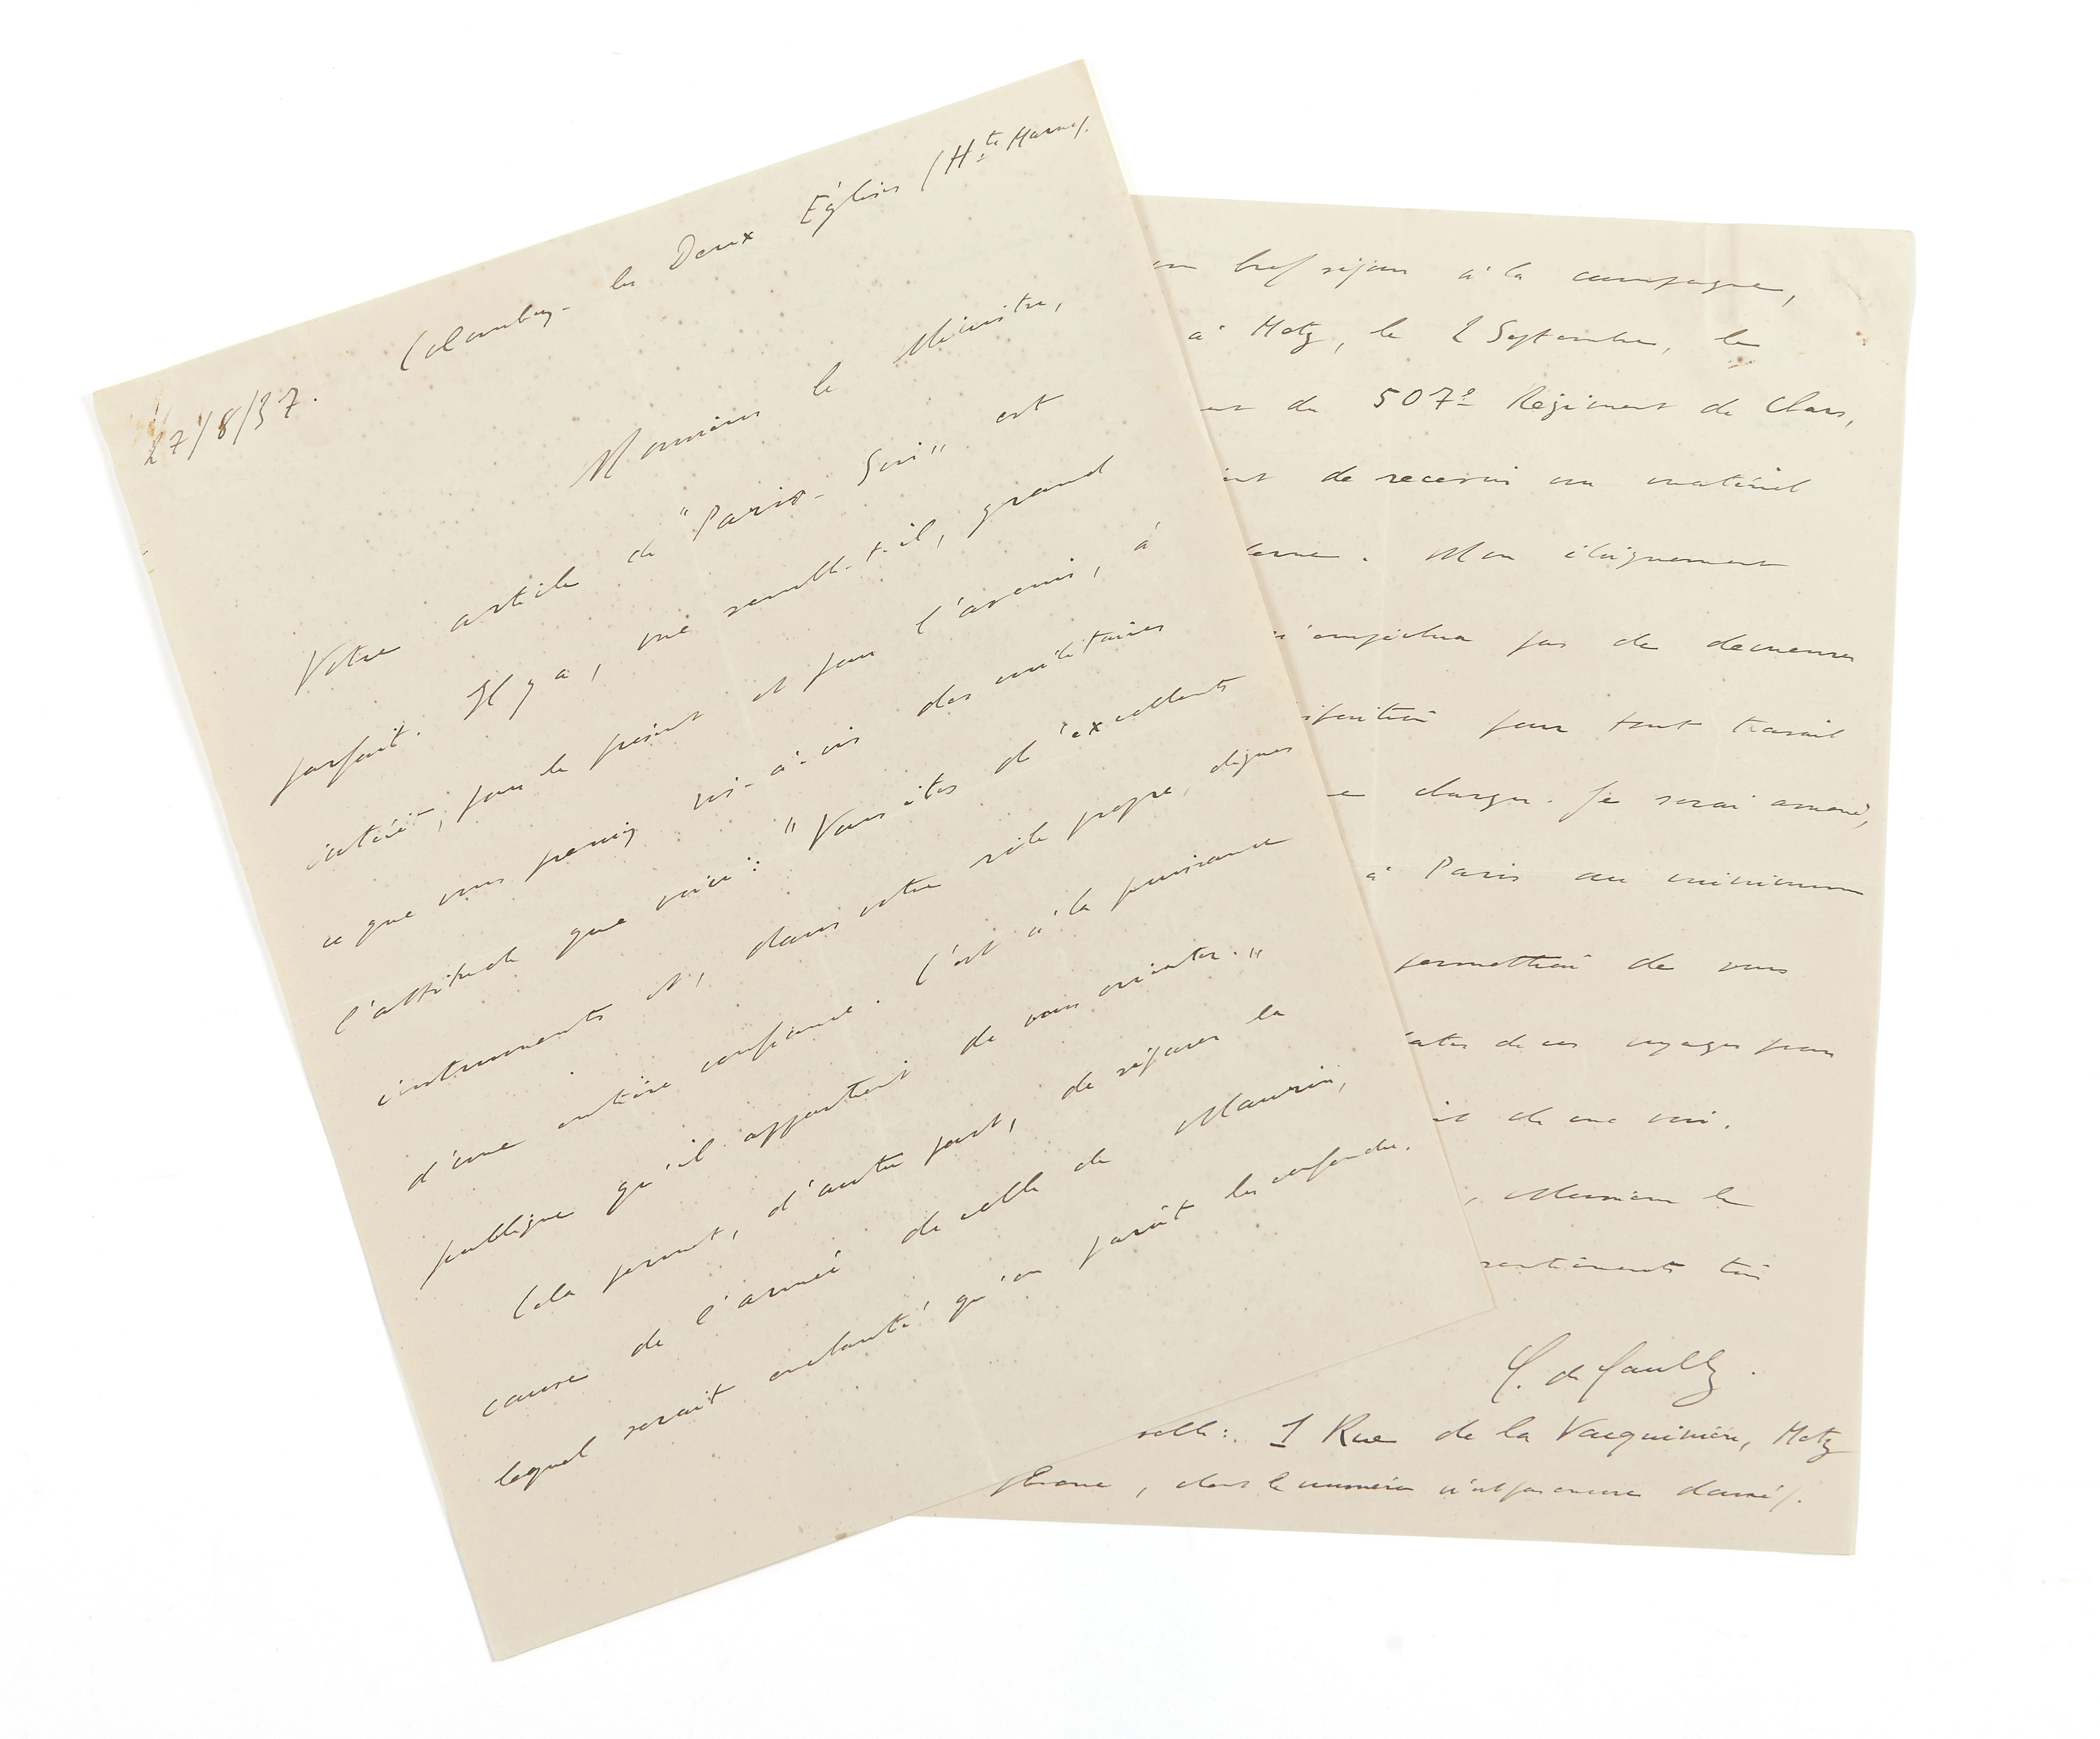 27/8/37. Colombey-les Deux Églises (Hte Marne).
Monsieur le Ministre,
Votre article de "Paris-Soir" est
parfait. Il y a, me semble-t-il, grand
intérêt, pour le présent et pour l'avenir, à
ce que vous preniez vis-à-vis des militaires
l'attitude que voici : "Vous êtes d'excellents
instruments et, dans votre rôle propre, dignes
d'une entière confiance. C'est à la puissance
publique qu'il appartient de vous orienter."
Cela permet, d'autre part, de séparer la
cause de l'armée de celle de Maurin,
lequel serait enchanté qu'on parût les confondre.
un bref séjour à la campagne,
à Metz, le 2 Septembre, le
du 507e Régiment de Chars,
de recevoir un matériel
. Mon éloignement
n'empêchera pas de demeurer
pour tout travail
charger. Je serai amené,
à Paris au minimum
permettrai de vous
dates de ces voyages pour
de me voir.
, Monsieur le
sentiments très
C. de Gaulle.
: 1 Rue de la Vacquinière, Metz
, dont le numéro n'est pas encore donné).